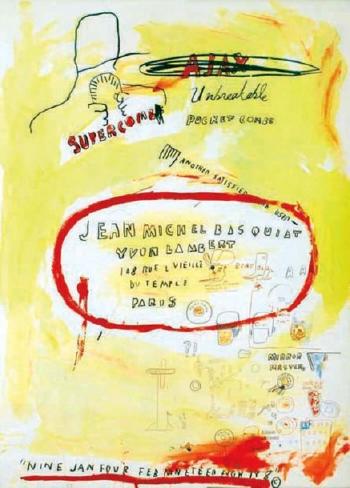 AJAX
Unbreakable
POCKET COMBS
SUPERCOMB
ANOTHER SATISFIED
JEAN MICHEL BASQUIAT
YVON LAMBERT
108 RUE VIEILLE
DU TEMPLE
PARIS
MIRROR
MASTER
"NINE JAN FOUR FEB NINETEEN
©